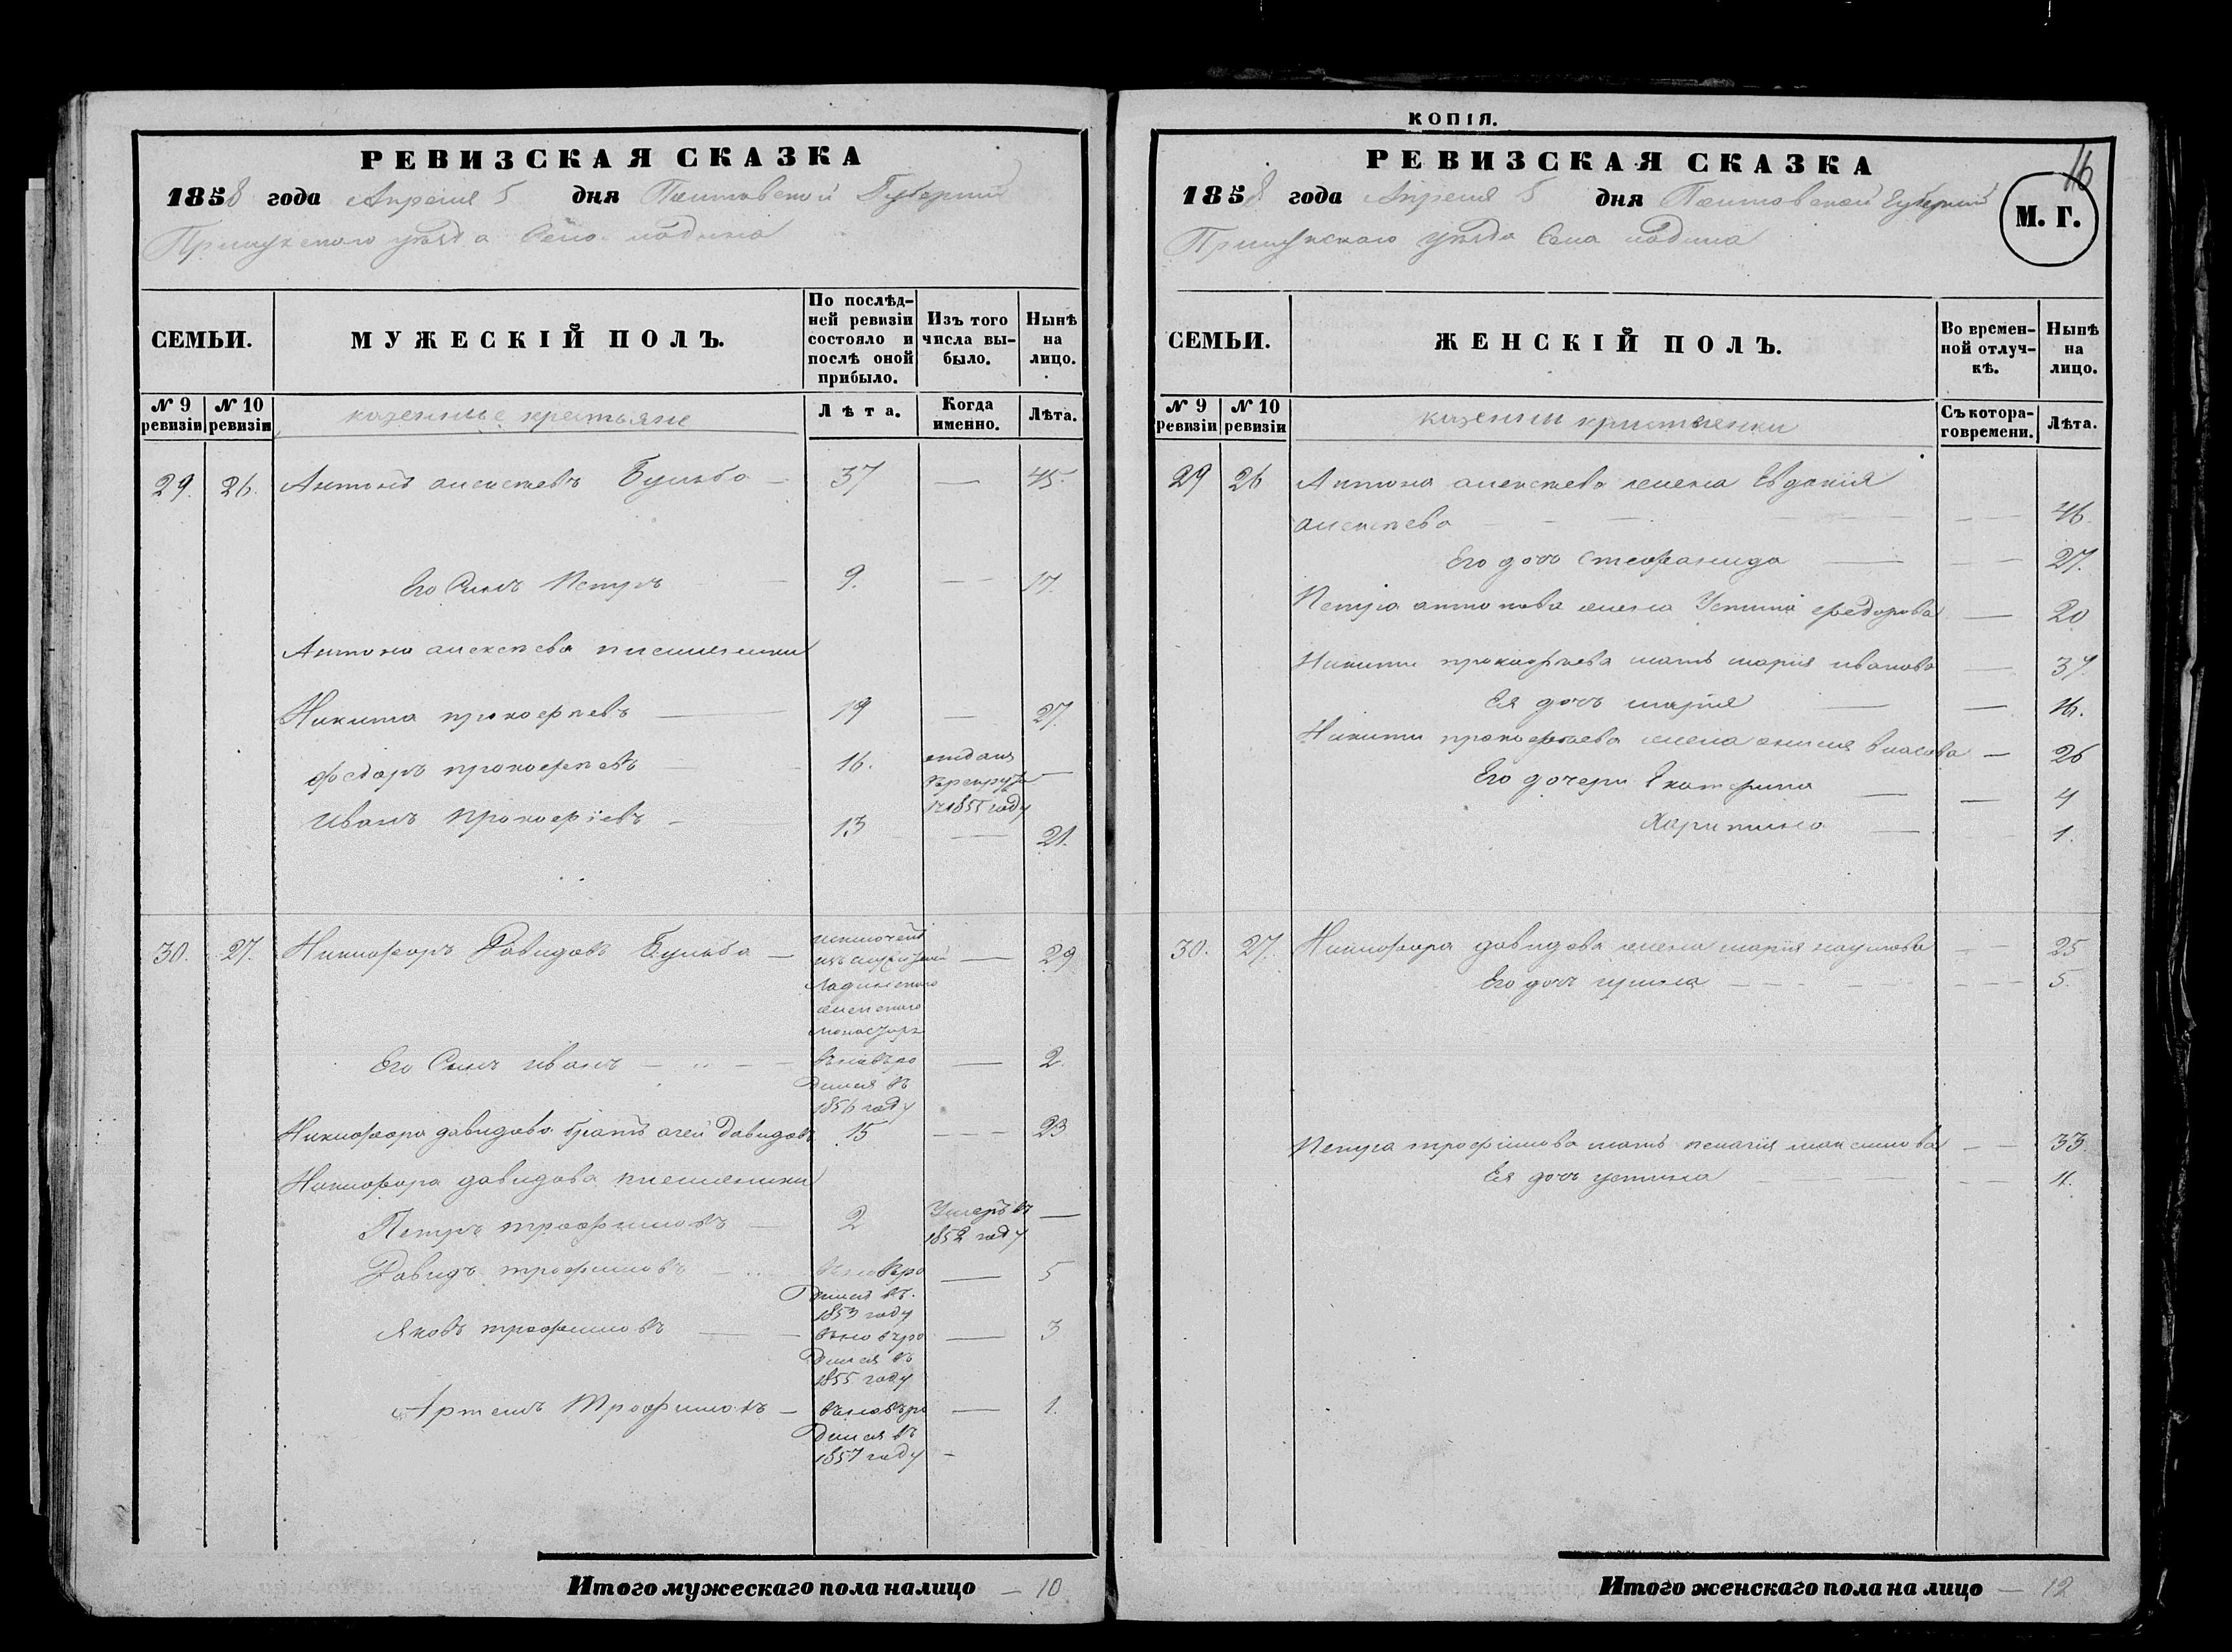 РЕВИЗСКАЯ СКАЗКА
1858 года Апреля 5 дня Полтавской Губернии
Прилукского уезда Село Ладина
СЕМЬИ.
МУЖЕСКІЙ ПОЛЪ.
По послѣд-
ней ревизіи
состояло и
послѣ оной
прибыло.
Изъ того
числа вы-
было.
Нынѣ
на
лицо.
№ 9
ревизіи
№ 10
ревизіи
казенные крестьяне
Лѣта.
Когда
именно.
Лѣта.
29. 26. Антонъ алексеевъ Бульба — 37 — 45.
Его Сынъ Петръ 9. — 17.
Антона алексеева племянники
Никита прокофиевъ — 19 — 27.
федоръ прокофиевъ 16. отданъ
в рекруты —
в 1855 году
иванъ прокофіевъ — 13 — 21.
30. 27. Никифоръ Давидовъ Бульба — — 29
Ладинского
женского
монастиря
Его Сынъ иванъ — вновь ро — 2.
дился въ
1856 году
Никифора давидова братъ Давидовъ 15 — 23
Никифора давидова племяники
Петръ трофимовъ — 2 Умеръ въ —
1852 году
Давидъ трофимовъ — вновь ро — 5
дился въ
1853 году
Яковъ трофимовъ — вновь ро — 3
дился въ
1855 году
Артемъ Трофимовъ — вновь ро — 1.
дился въ
1857 году —
Итого мужескаго пола налицо — 10
КОПІЯ.
РЕВИЗСКАЯ СКАЗКА
16
1858 года Апреля 5 дня Полтовской Губернии
М. Г.
Прилукскаго уезда Села ладина
СЕМЬИ.
ЖЕНСКІЙ ПОЛЪ.
Во времен-
ной отлуч-
кѣ.
Нынѣ
на
лицо.
№ 9
ревизіи
№ 10
ревизіи
казенны кристьянки
Съ котора-
го времени.
Лѣта.
29 26 Антона алексеева жена Евдокия
алексеева — 46.
Его дочь стефанида — 27.
Петра антонова жена Устина федорова — 20
Никиты прокофиева мать мария иванова — 37.
Ея дочь мария — 16.
Никиты прокофиева жена власова — 26
Его дочери Екатерина — 4
Харитина — 1.
30. 27. Никифора давидова жена мария наумова — 25
Его дочь ирина — 5.
Петра трофимова мать пелагия максимова — 33.
Ея дочь устина — 11.
Итого женскаго пола на лицо — 12